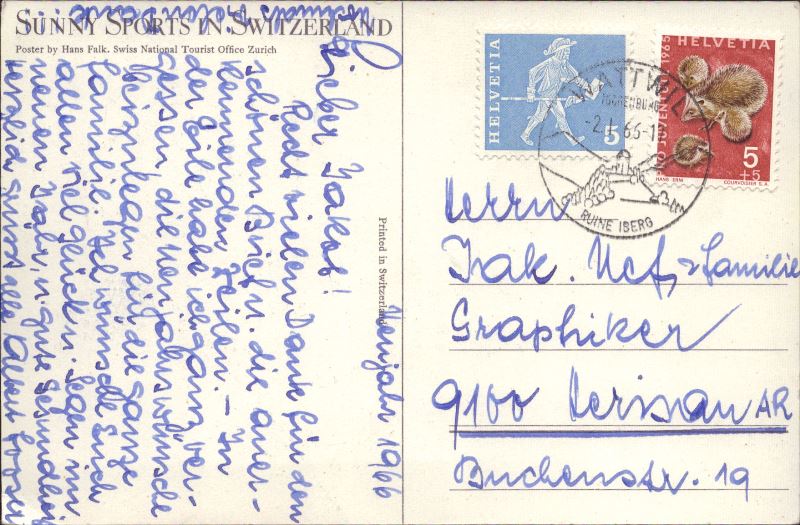 SUNNY SPORTS IN SWITZERLAND
Poster by Hans Falk. Swiss National Tourist Office Zurich
Neujahr 1966
Lieber Jakob!
Recht vielen Dank für den
schönen Brief u. die aner-
kennenden Zeilen. – In
der Eile habe ich ganz ver-
gessen, die Neujahrswünsche
beizulegen für die ganze
Familie. Ich wünsche Euch
allen viel Glück u. Segen im
neuen Jahr, u. gute Gesundheit
herzlich grüsst alle Albert
vielen Dank
Printed in Switzerland
HELVETIA
5
HELVETIA
PRO JUVENTUTE 1965
5
+5
HANS ERNI
COURVOISIER S.A.
WATTWIL
-2.1.66-1
RUINE IBERG
Herrn
Jak. Nef, & Familie
Graphiker
9100 Herisau AR
Buchenstr. 19